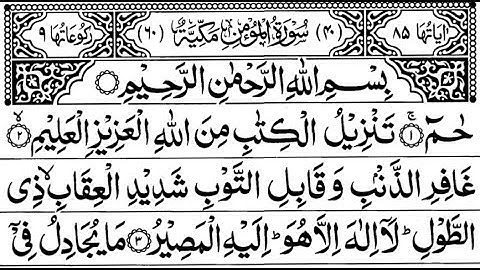 اٰیَاتُهَا ۸۵ (۴۰) سُوْرَةُ الْمُؤْمِنِ مَكِّیَّةٌ (۶۰) رُكُوْعَاتُهَا ۹
بِسْمِ اللهِ الرَّحْمٰنِ الرَّحِیْمِ
حٰمٓ ۚ﴿۱﴾ تَنْزِیْلُ الْكِتٰبِ مِنَ اللهِ الْعَزِیْزِ الْعَلِیْمِ ۙ﴿۲﴾
غَافِرِ الذَّنْۢبِ وَ قَابِلِ التَّوْبِ شَدِیْدِ الْعِقَابِ ۙ ذِی
الطَّوْلِ ؕ لَاۤ اِلٰهَ اِلَّا هُوَ ؕ اِلَیْهِ الْمَصِیْرُ ﴿۳﴾ مَا یُجَادِلُ فِیْۤ